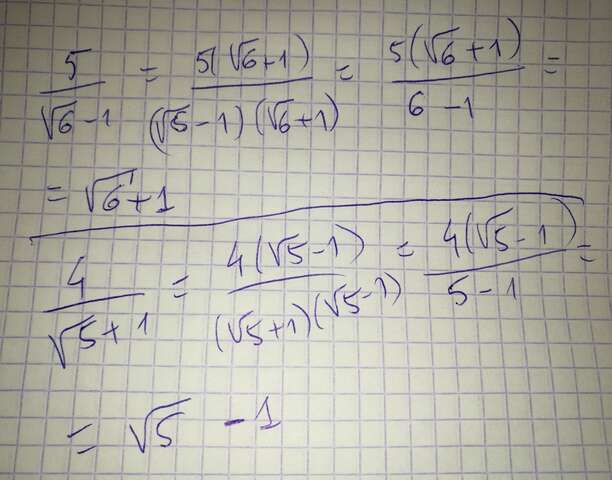 5/(√6-1) = 5(√6+1)/((√5-1)(√6+1)) = 5(√6+1)/(6-1) =
= √6+1
4/(√5+1) = 4(√5-1)/((√5+1)(√5-1)) = 4(√5-1)/(5-1) =
= √5 - 1